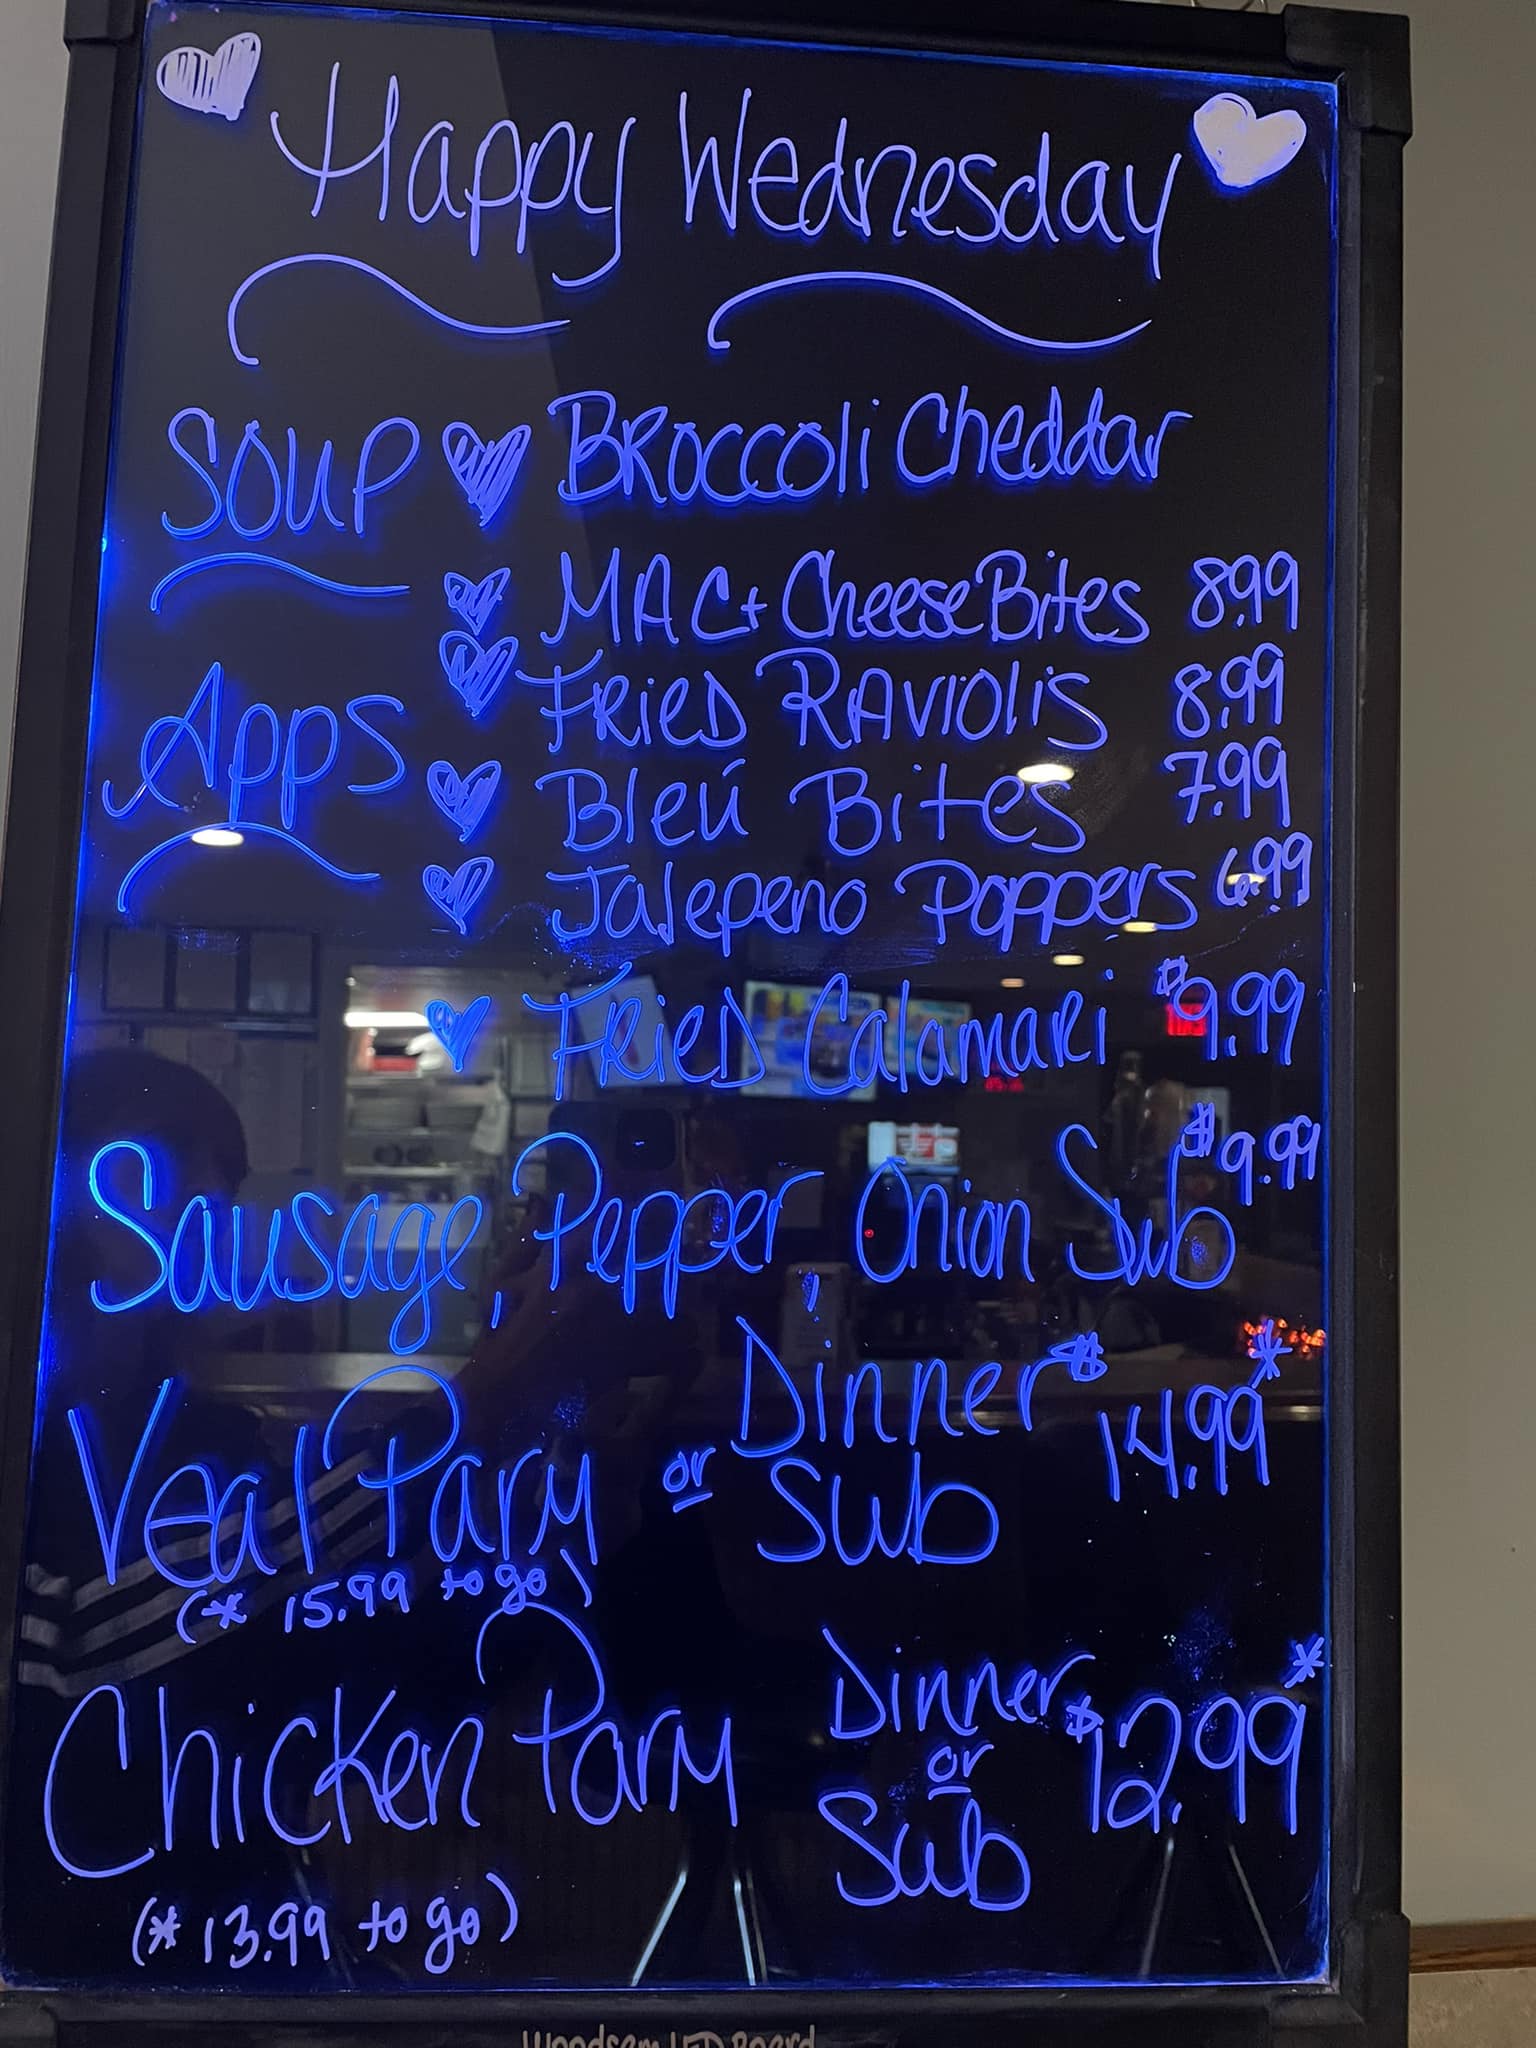 Happy Wednesday
Soup Broccoli Cheddar
Apps
Mac + Cheese Bites 8.99
Fried Raviolis 8.99
Bleú Bites 7.99
Jalepeno Poppers 6.99
Fried Calamari $9.99
Sausage, Pepper, Onion Sub $9.99
Veal Parm Dinner or Sub $14.99*
(* 15.99 to go)
Chicken Parm Dinner or Sub $12.99*
(* 13.99 to go)
LED Board